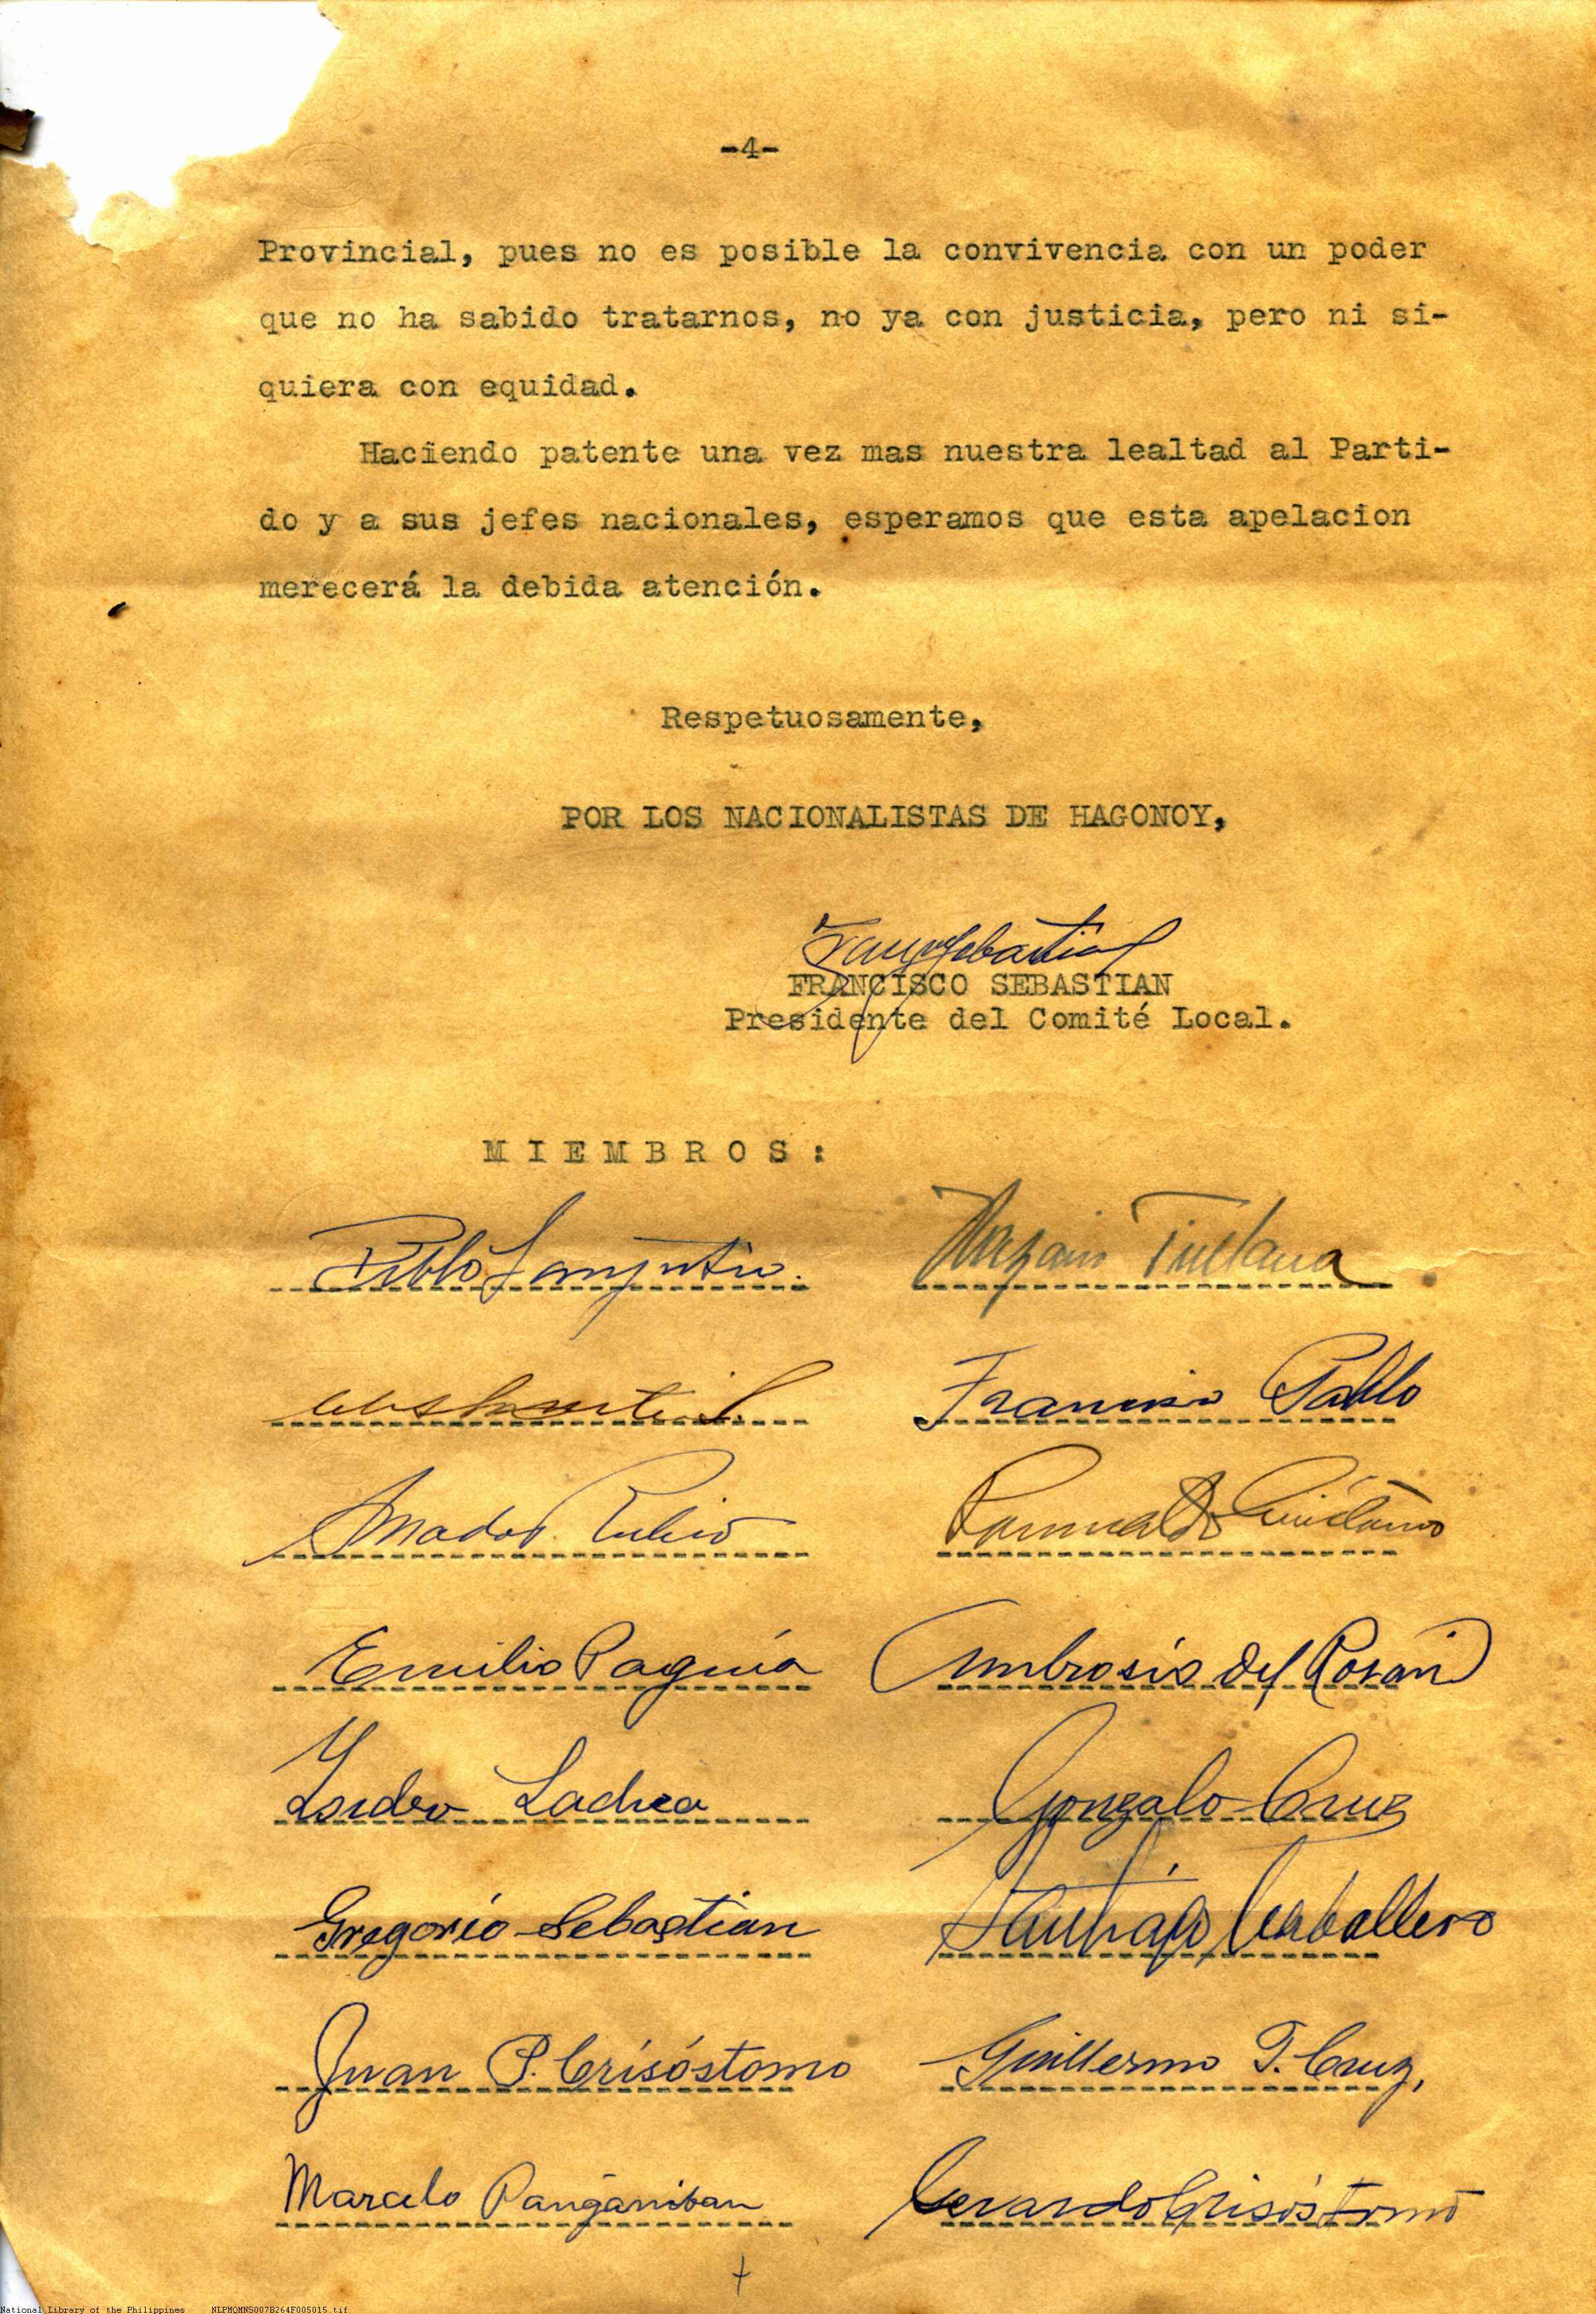 -4-
Provincial, pues no es posible la convivencia con un poder
que no ha sabido tratarnos, no ya con justicia, pero ni si-
quiera con equidad.
Haciendo patente una vez mas nuestra lealtad al Parti-
do y a sus jefes nacionales, esperamos que esta apelacion
merecerá la debida atención.
Respetuosamente,
POR LOS NACIONALISTAS DE HAGONOY,
FRANCISCO SEBASTIAN
Presidente del Comité Local.
MIEMBROS:
Pablo
Francisco Pablo
Amador Rubio
Romualdo
Emilio Paguia
Ambrosio del Rosario
Isidro Gonzalo Cruz
Gregorio Sebastian Santiago Caballero
Juan P. Crisóstomo Guillermo T. Cruz,
Marcelo Panganiban Gerardo Crisóstomo
National Library of the Philippines NLPMQMNS007B264F005015.tif